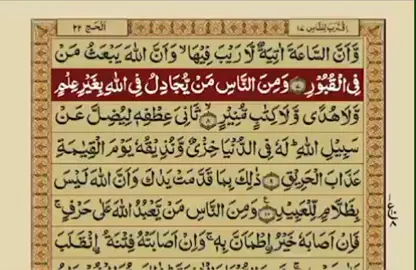 اقترب للناس ١٧
الحج ٢٢
وَّاَنَّ السَّاعَةَ اٰتِيَةٌ لَّا رَيْبَ فِيْهَا ۙ وَاَنَّ اللّٰهَ يَبْعَثُ مَنْ
فِى الْقُبُوْرِ ﴿۷﴾ وَمِنَ النَّاسِ مَنْ يُّجَادِلُ فِى اللّٰهِ بِغَيْرِ عِلْمٍ
وَّلَا هُدًى وَّلَا كِتٰبٍ مُّنِيْرٍ ﴿۸﴾ ثَانِىَ عِطْفِهٖ لِيُضِلَّ عَنْ
سَبِيْلِ اللّٰهِ ؕ لَهٗ فِى الدُّنْيَا خِزْىٌ وَّنُذِيْقُهٗ يَوْمَ الْقِيٰمَةِ
عَذَابَ الْحَرِيْقِ ﴿۹﴾ ذٰلِكَ بِمَا قَدَّمَتْ يَدٰكَ وَاَنَّ اللّٰهَ لَيْسَ
بِظَلَّامٍ لِّلْعَبِيْدِ ﴿۱۰﴾ وَمِنَ النَّاسِ مَنْ يَّعْبُدُ اللّٰهَ عَلٰى حَرْفٍ ۚ
فَاِنْ اَصَابَهٗ خَيْرُ ۨاطْمَاَنَّ بِهٖ ۚ وَاِنْ اَصَابَتْهُ فِتْنَةُ ۨانْقَلَبَ